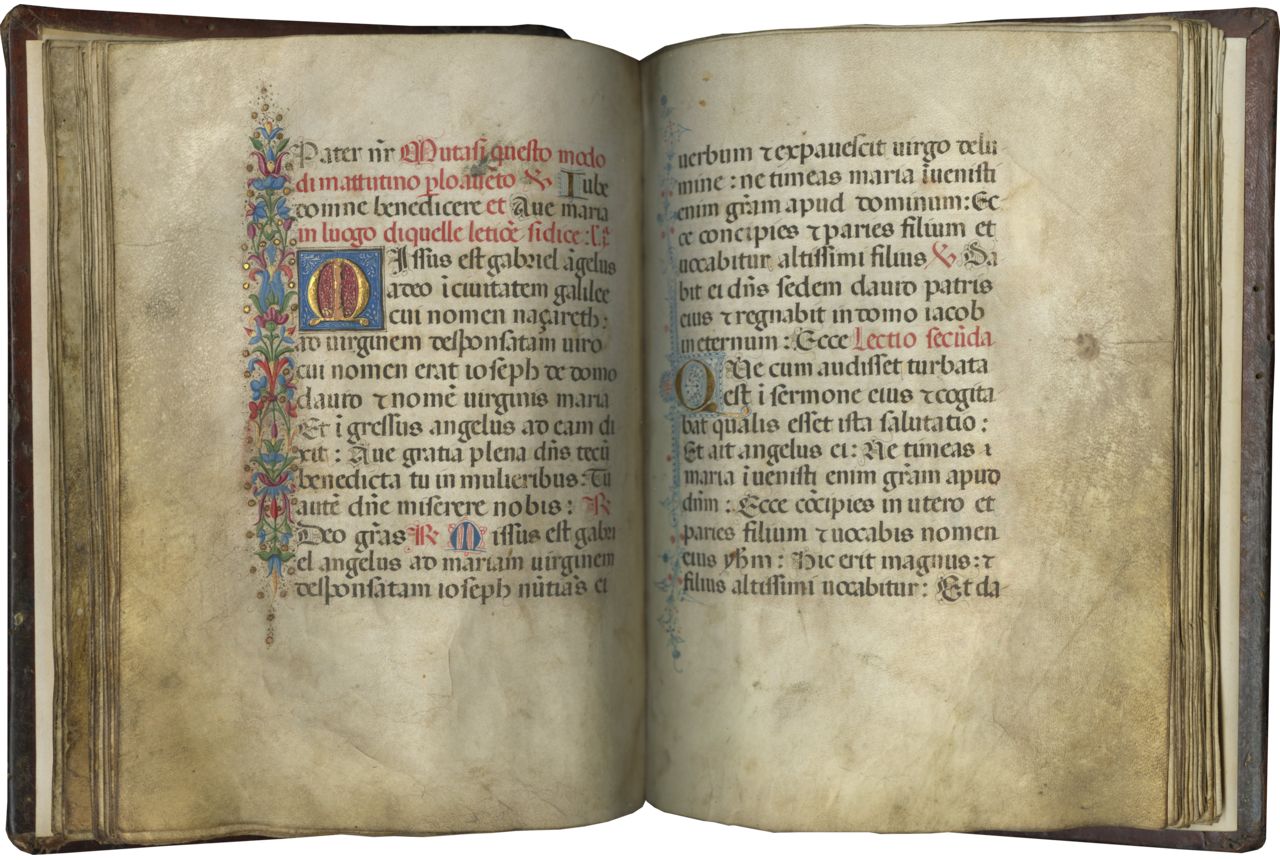 Pater nr̄ Mutasi questo modo
di mattutino p̱ lo aueto V Iube
domne benedicere et Aue maria
in luogo di quelle letiōe si dice: Lō
MIssus est gabriel āgelus
a deo ī ciuitatem galilee
cui nomen naçareth:
ad uirginem desponsatam uiro
cui nomen erat ioseph de domo
dauid ⁊ nomē uirginis maria
Et ī gressus angelus ad eam di
xit: Aue gratia plena dn̄s tecū
benedicta tu in mulieribus: Tu
autē dn̄e miserere nobis: R
Deo grās R Missus est gabri
el angelus ad mariam uirginem
desponsatam ioseph nūtiās ei
uerbum ⁊ expauescit uirgo de lu
mine: ne timeas maria īuenisti
enim grām apud dominum: Ec
ce concipies ⁊ paries filium et
uocabitur altissimi filius V Da
bit ei dn̄s sedem dauid patris
eius ⁊ regnabit in domo iacob
in eternum: Ecce Lectio secūda
QVe cum audisset turbata
est ī sermone eius ⁊ cogita
bat qualis esset ista salutatio:
Et ait angelus ei: Ne timeas
maria īuenisti enim grām apud
dnm̄: Ecce cōcipies in utero et
paries filium ⁊ uocabis nomen
eius yh̄m: Hic erit magnus: ⁊
filius altissimi uocabitur: Et da